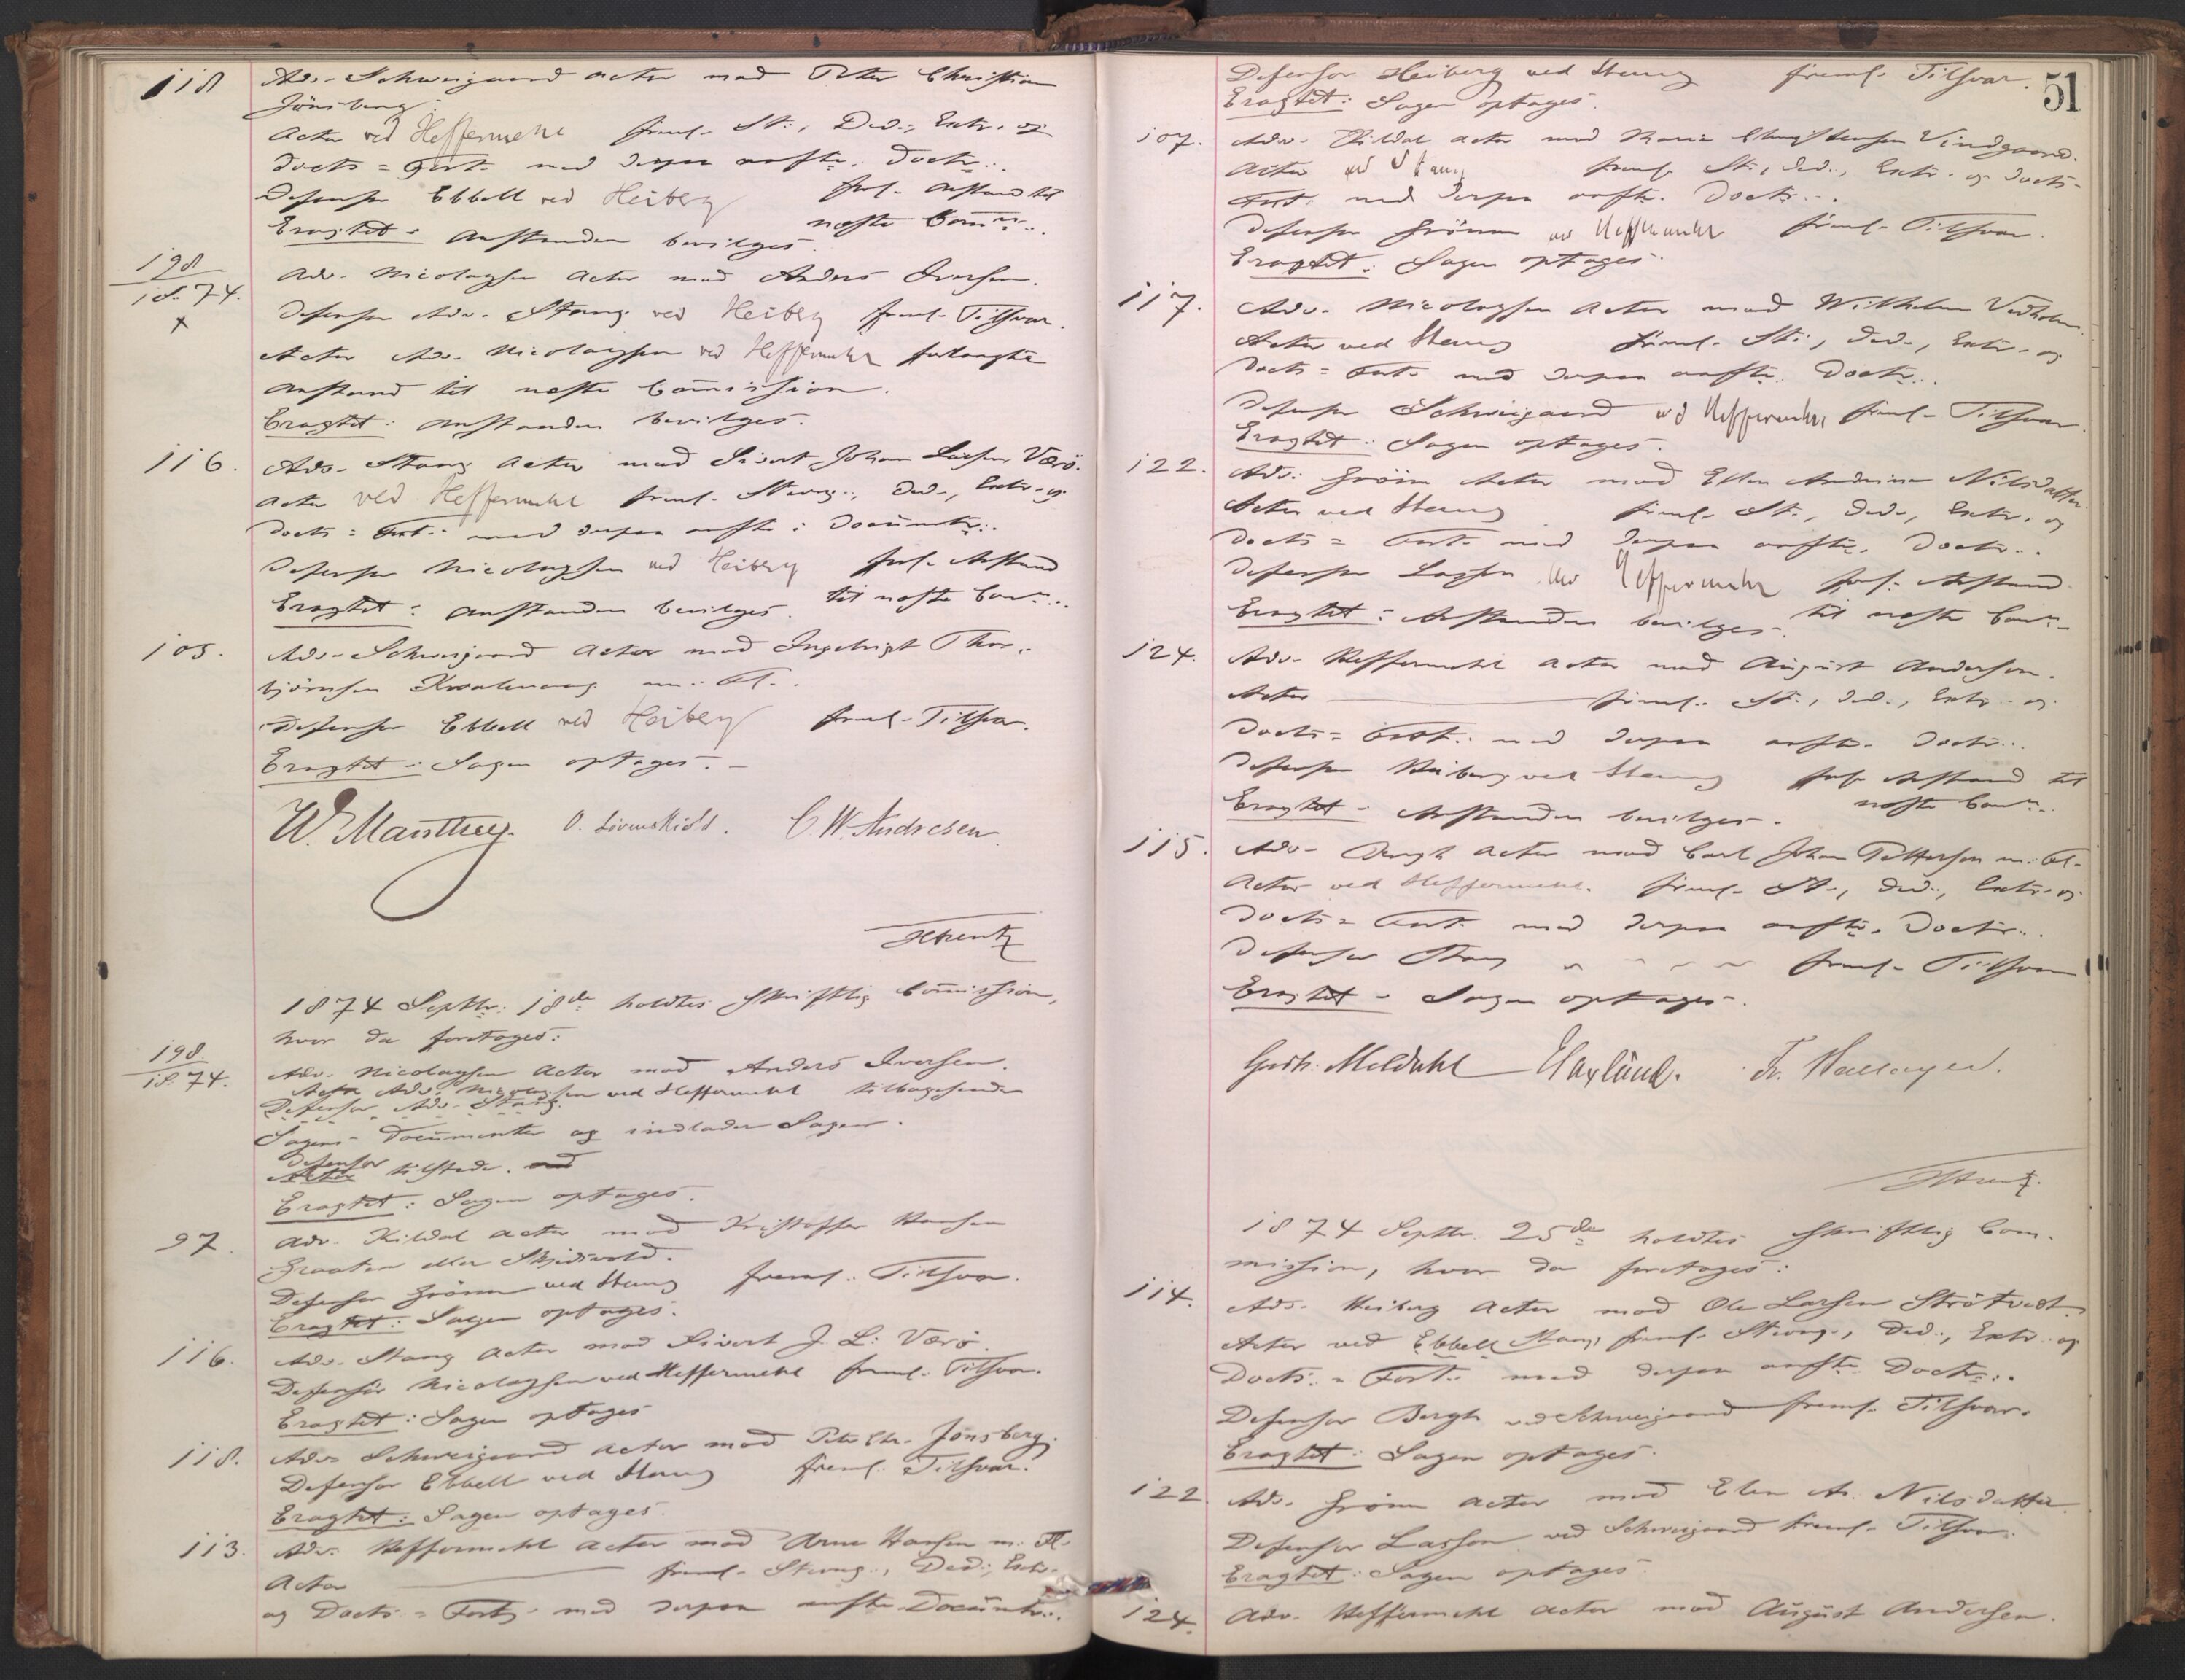 118 Adv. Schweigaard Actor mod Peter Christian
Jönsberg.
Actor ved Heffermehl freml. St., Ded., Extr. og
Docts = Fort. med derpaa anfte. Doctr..
Defensor Ebbell ved Heiberg forl. Anstand til
næste Comn..
Eragtet: Anstanden bevilges.
198
18 74. Adv. Nicolaysen Actor mod Anders Iversen.
x
Defensor Adv. Stang ved Heiberg freml. Tilsvar.
Actor Adv. Nicolaysen ved Heffermehl forlangte
Anstand til næste Commission.
Eragtet: Anstanden bevilges.
116. Adv. Stang Actor mod Sivert Johan Larsen Værö.
Actor ved Heffermehl freml. Stevng., Ded., Extr. og
Docts = Fort. med derpaa anfte: Documtr..
Defensor Nicolaysen ved Heiberg forl. Anstand
til næste Comn..
Eragtet: Anstanden bevilges.
105. Adv. Schweigaard Actor mod Ingebrigt Thor-
björnsen m: Fl..
Defensor Ebbell ved Heiberg freml. Tilsvar.
Eragtet: Sagen optages.
W. Manthey. O. Lövenskiold. C. W. Andresen.
1874 Septbr. 18de holdtes skriftlig Commission,
hvor da foretoges:
198
18 74. Adv. Nicolaysen Actor mod Anders Iversen.
Actor Adv. Nicolaysen ved Heffermehl tilbagesender
Defensor Adv. Stang.
Sagens Documenter og indlader Sagen.
Defensor
Actor tilstede.
Eragtet: Sagen optages.
97. Adv. Kildal Actor mod Kristoffer Hansen
Braaten eller Skjidsvold.
Defensor Grönn ved Stang freml. Tilsvar.
Eragtet: Sagen optages.
116. Adv. Stang Actor mod Sivert J. L. Værö.
Defensor Nicolaysen ved Heffermehl freml. Tilsvar.
Eragtet: Sagen optages
118. Adv. Schweigaard Actor mod Peter Chr. Jönsberg.
Defensor Ebbell ved Stang freml. Tilsvar.
Eragtet: Sagen optages.
113. Adv. Heffermehl Actor mod Arne Hansen m. Fl.
Actor freml. Stevng., Ded., Extr.
og Docts = Fort. med derpaa anfte Documtr..
51
Defensor Heiberg ved Stang freml. Tilsvar.
Eragtet: Sagen optages.
107. Adv. Kildal Actor mod Maria Christensen Vindgaard.
Actor ved Stang freml. St., Ded., Extr. og Docts-
Fort. med derpaa anfte. Doctr..
Defensor Grönn ved Heffermehl freml. Tilsvar.
Eragtet: Sagen optages.
117. Adv. Nicolaysen Actor mod Wilhelm Vedholm.
Actor ved Stang freml. St., Ded., Extr. og
Docts = Fort. med derpaa anfte. Doctr..
Defensor Schweigaard ved Heffermehl freml. Tilsvar.
Eragtet: Sagen optages.
122. Adv. Grönn Actor mod Ellen Andrine Nilsdatter.
Actor ved Stang freml. St., Ded., Extr. og
Docts = Fort. med derpaa anfte. Doctr..
Defensor Lasson ved Heffermehl forl. Anstand
til næste Comn.
Eragtet: Anstanden bevilges.
124. Adv. Heffermehl Actor mod August Andersen.
Actor freml. St., Ded., Extr. og
Docts = Fort. med derpaa anfte. Doctr..
Defensor Heiberg ved Stang forl. Anstand til
næste Comn.
Eragtet: Anstanden bevilges.
115. Adv. Bergh Actor mod Carl Johan Pettersen m. Fl.
Actor ved Heffermehl. freml. St., Ded., Extr. og
Docts = Fort. med derpaa anfte. Doctr..
Defensor Stang freml. Tilsvar
Eragtet: Sagen optages.
Gudb. Meldahl Haxlund. Fr. Hallager.
1874 Septbr. 25de holdtes skriftlig Com-
mission, hvor da foretoges:
114. Adv. Heiberg Actor mod Ole Larsen Strötvedt.
Actor ved Ebbell Stang freml. Stevng., Ded., Extr. og
Docts. = Fort. med derpaa anfte Doctr..
Defensor Bergh ved Schweigaard freml. Tilsvar.
Eragtet: Sagen optages.
122. Adv. Grönn Actor mod Elen An. Nilsdatter.
Defensor Lasson ved Schweigaard freml. Tilsvar.
Eragtet: Sagen optages.
124. Adv. Heffermehl Actor mod August Andersen.